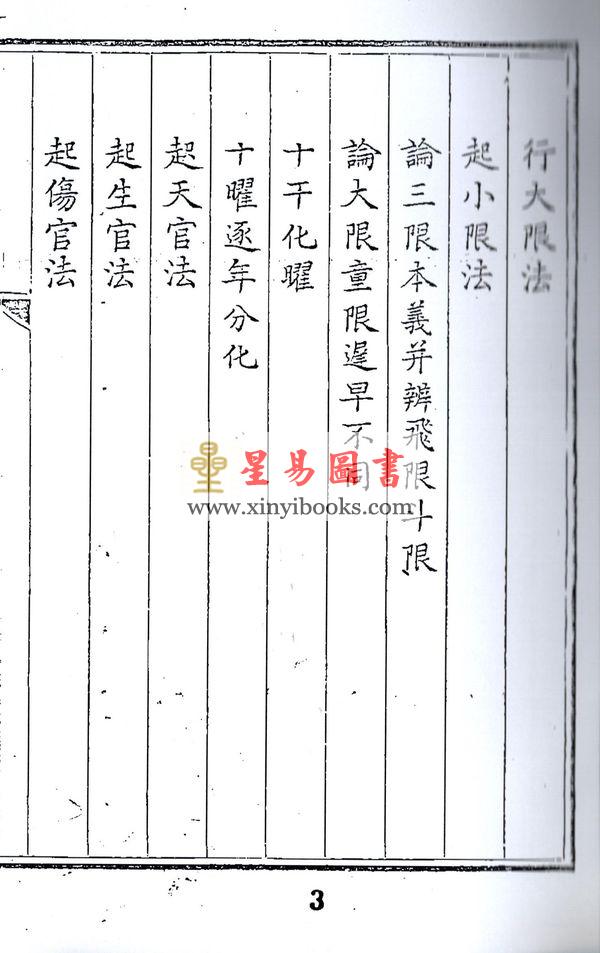 行大限法
起小限法
論三限本義并辨飛限斗限
論大限童限遲早不同
十干化曜
十曜逐年分化
起天官法
起生官法
起傷官法
星易圖書
www.xinyibooks.com
3